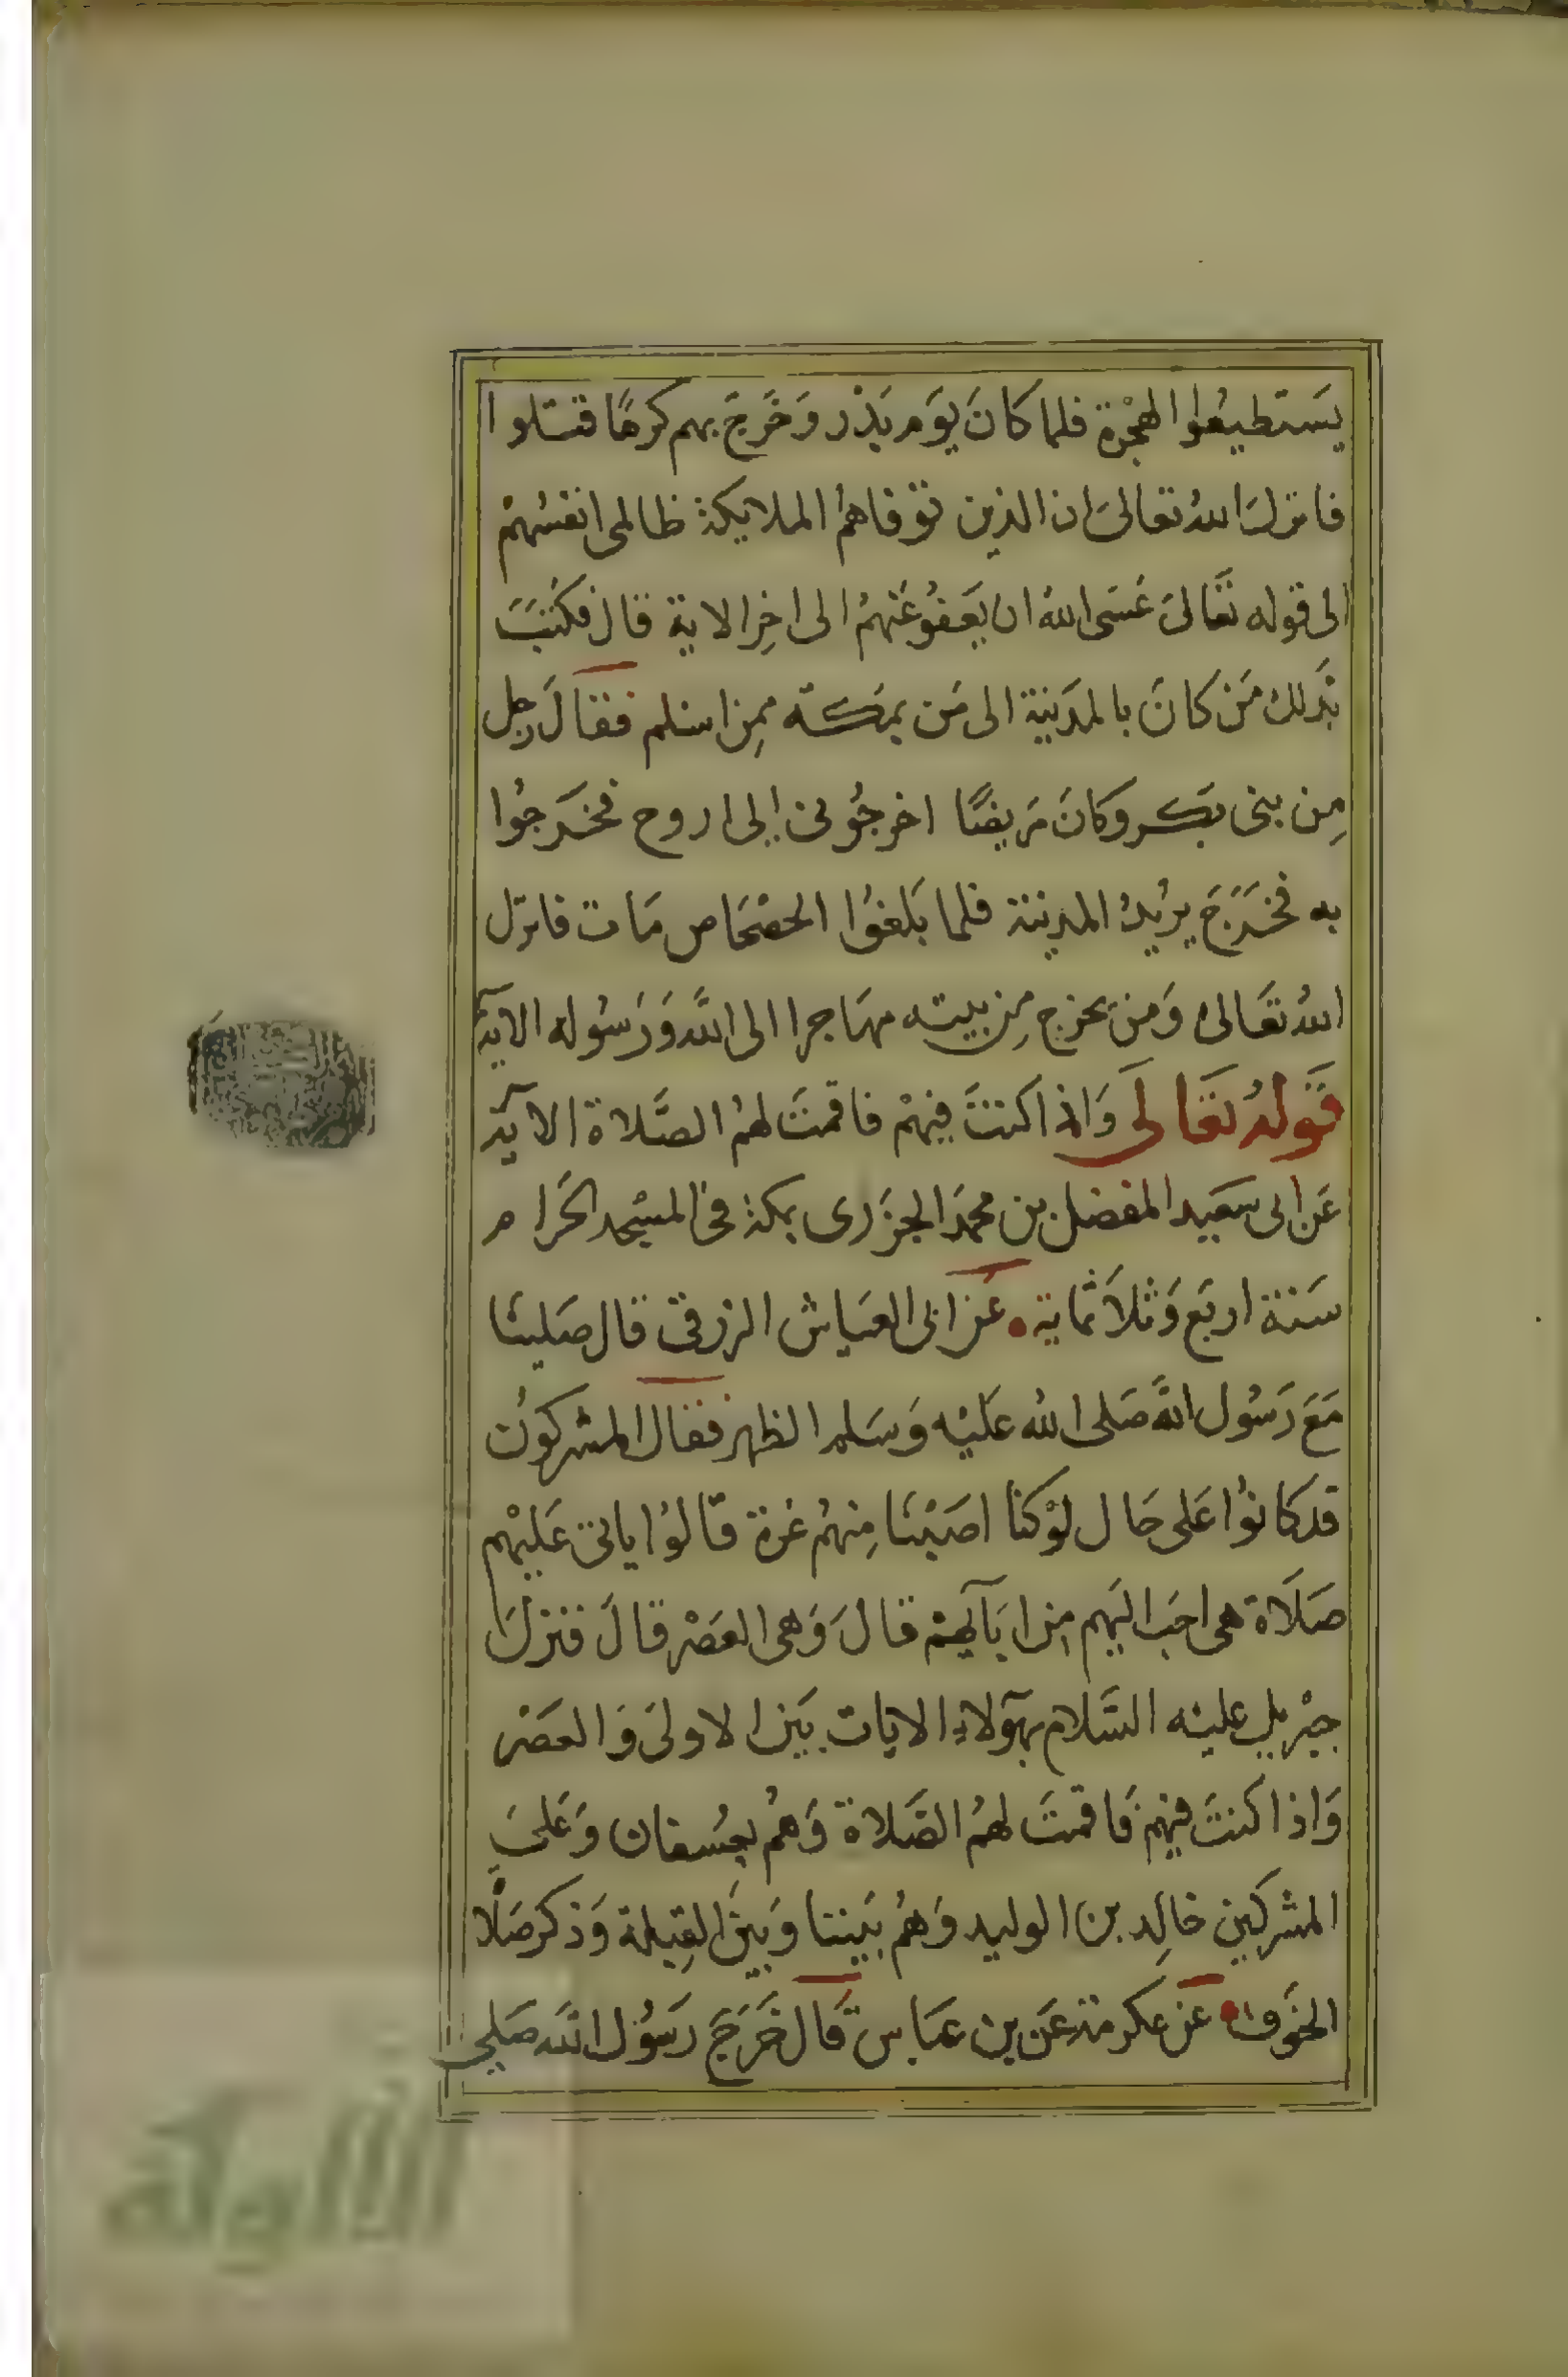 يَستطيعُوا الهجْرة فلما كانَ يوَم بَدْر وَخَرجَ بهم كرهًا قتلوا
فانزلَ اللهُ تعالىَ ان الذين توفاهمُ الملايكة ظالمى انفسُهمْ
الى قوله تعَالىَ عَسَى اللهُ ان يَعفوُ عَنهمُ الى اخِر الاية قال فكتبَ
بذلك مَنْ كانَ بالمدَينة الى مَن بمَكة ممِن اسْلم فقالَ رجل
مِن بنى بَكر وكانَ مَريضًا اخرجُونى الى اروح فخَرجُوا
به فخَرَجَ يريُدُ المدينة فلما بَلغوُا الحصْحَاص مَات فانزل
اللهُ تعَالىَ وَمنَ يخرج مِن بيته مهَاجرا الى اللَّه وَرَسُوله الاية
قَولهُ تعَالىَ وَاذا كنتَ فيهمْ فاقمتَ لهمُ الصَّلاة الاية
عَن ابى سَعَيد المفضل بن محمَد الجزَرى بمكة فى المسْجد الحَرام
سَنة اربَع وَثلاَثماية • عَن ابى العيَاش الزرقى قال صَلينَا
مَعَ رَسُول اللهَّ صَلى اللهُ عَليْه وَسَلم الظهر فقال المشركوُن
قد كانوُا عَلى حَال لوْ كنا اصَبْنَا مِنهمُ غرة قالوُا ياتى عَليْهم
صَلَاة هى احَب اليَهم من ابَآيهمْ قالَ وَهى العَصْر قالَ فنزلَ
جبْريل عليْه السَّلام بهَؤلاءِ الايات بَينَ الاولىَ وَالعَصْر
وَاذا كنتَ فيهمْ فَاقمتَ لهمُ الصَّلاة وَهُم بعُسفان وَعَلىَ
المشركين خالِد بن الوليد وَهُم بَيننا وَبَينَ القِبلة وَذكر صَلاة
الخوَف • عَن عكرمة عَن بن عبَاس قَال خَرَجَ رَسُول اللَّه صَلى
الألوكة